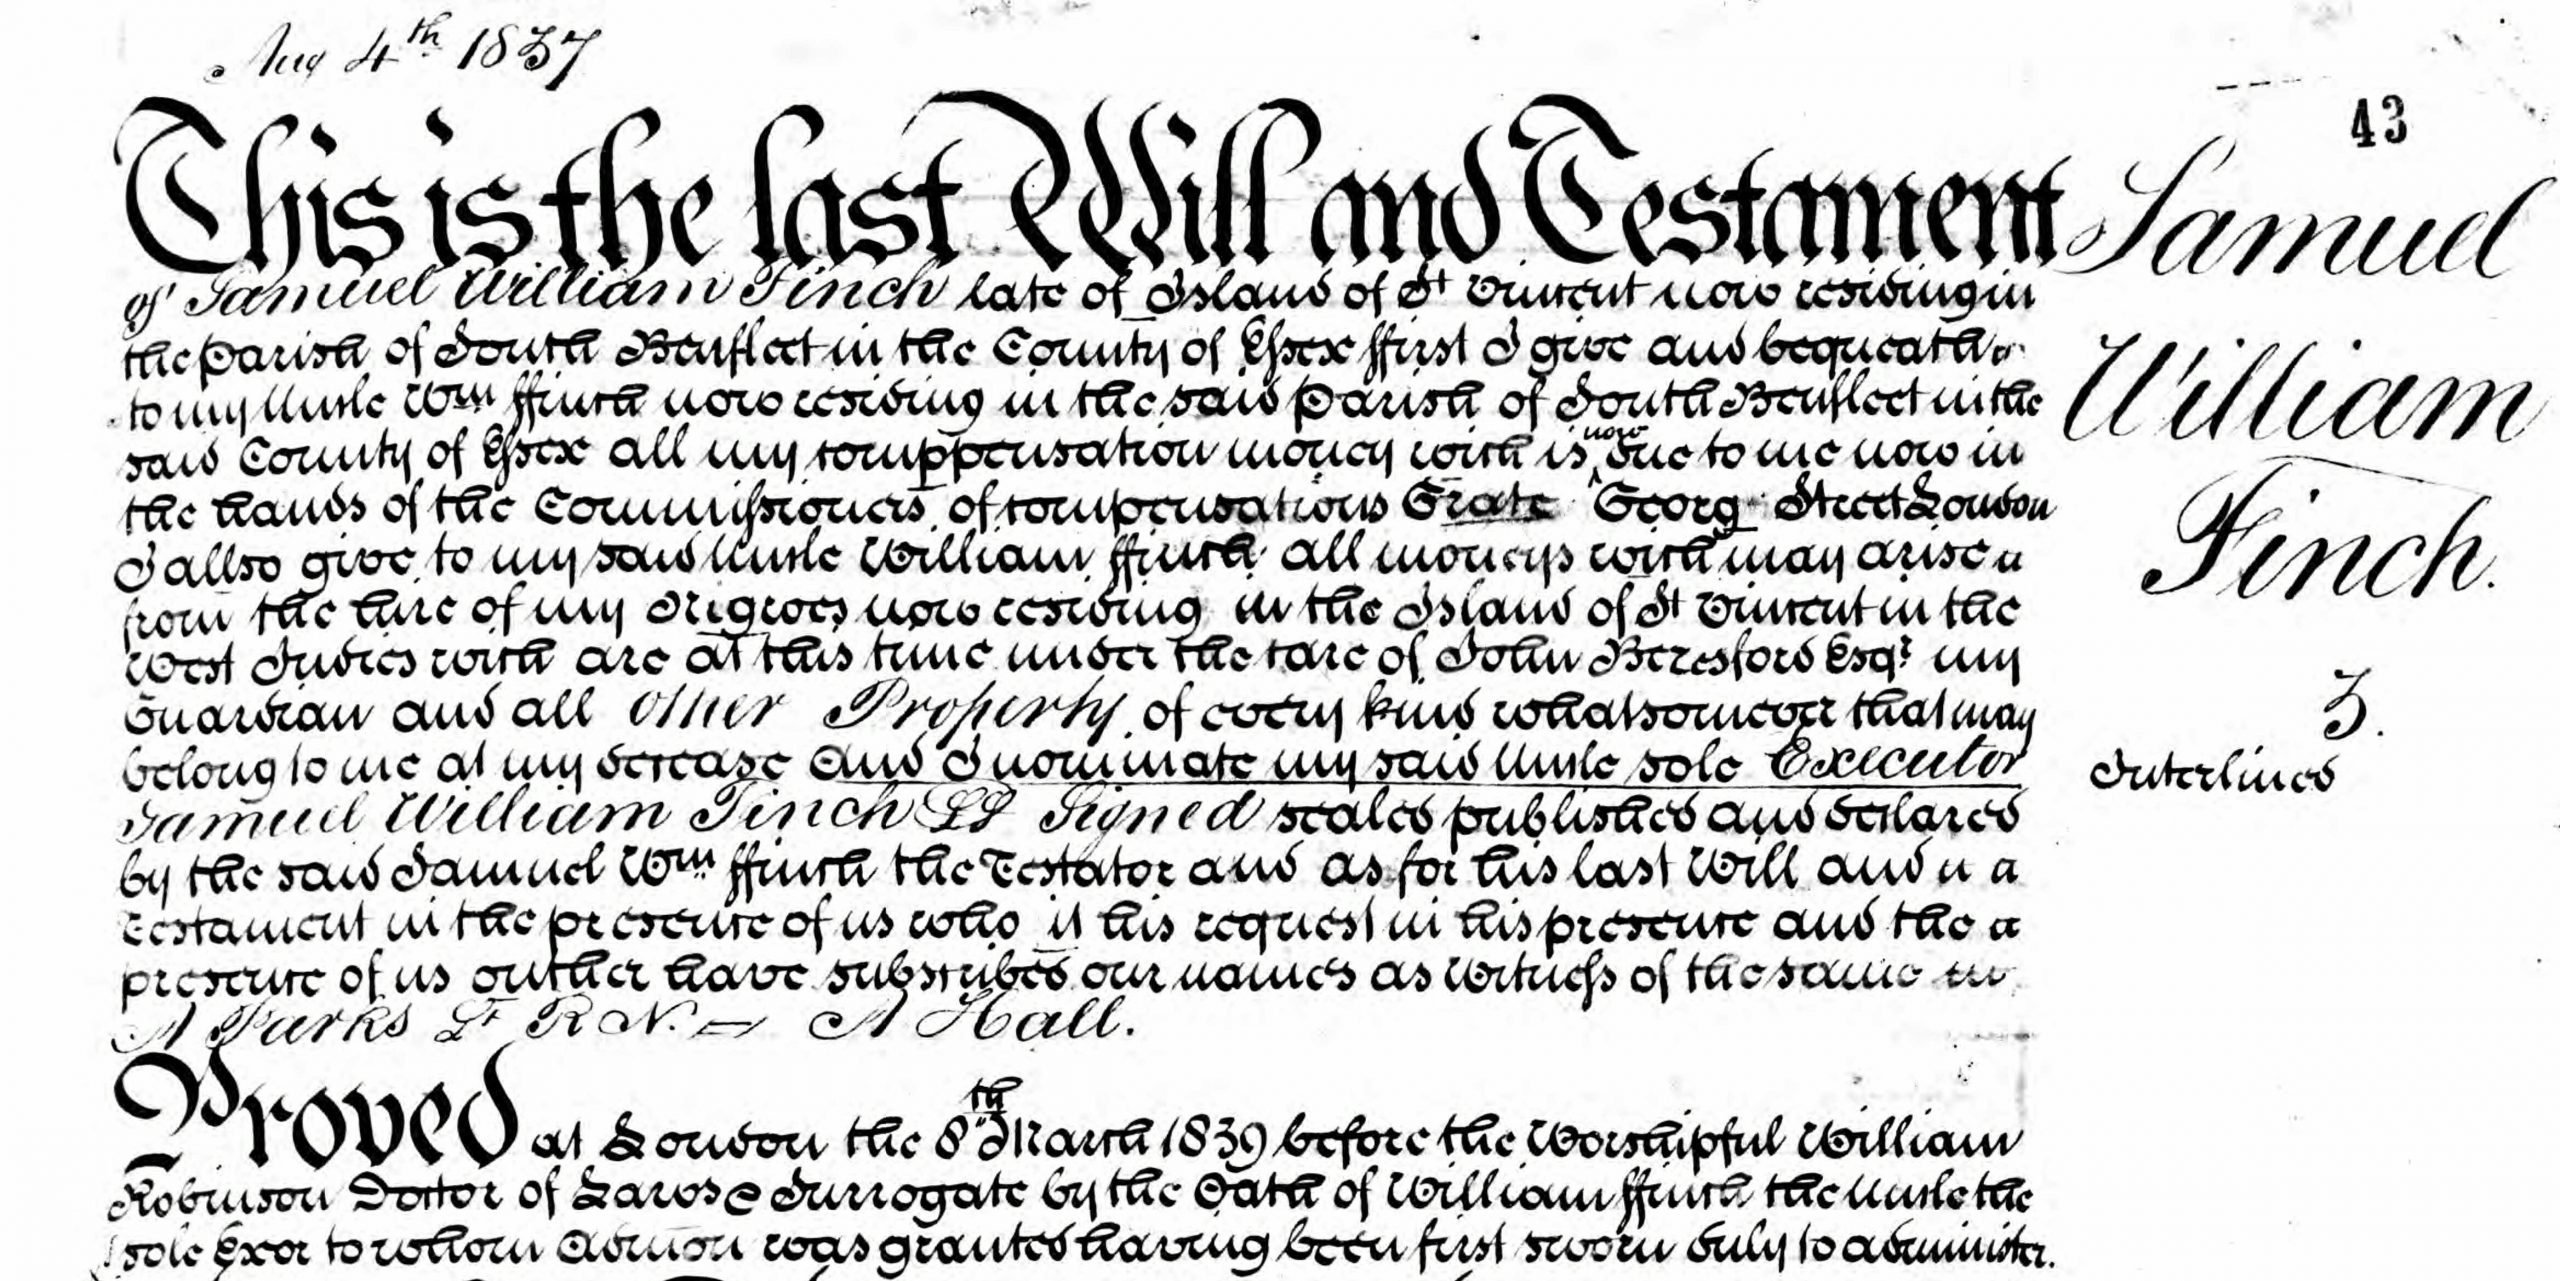 Aug 4th 1837
43
This is the last Will and Testament
of Samuel William Finch late of Island of St Vincent now residing in
the Parish of South Benfleet in the County of Essex ffirst I give and bequeath
to my Uncle Wm ffinch now residing in the said Parish of South Benfleet in the
said County of Essex all my comppensation money wich is now due to me now in
the hands of the Commissioners of compensations Grate Georg Street London
I allso give to my said Uncle William ffinch all moneys wich may arise
from the hire of my Negroes now residing in the Island of St Vincent in the
West Indies wich are at this time under the care of John Beresford Esqr my
Guardian and all other Property of every kind whatsomever that may
belong to me at my decease and I nominate my said Uncle sole Executor
Samuel William Finch LS Signed sealed published and declared
by the said Samuel Wm ffinch the Testator and as for his last Will and
Testament in the presence of us who at his request in his presence and the
presence of us outher have subscribed our names as Witness of the same
A Parks Lt R N. – A Hall.
Proved at London the 8th March 1839 before the Worshipful William
Robinson Doctor of Laws & Surrogate by the Oath of William ffinch the Uncle the
sole Exor to whom Admon was granted having been first sworn duly to administer.
Samuel
William
Finch.
3.
Interlined